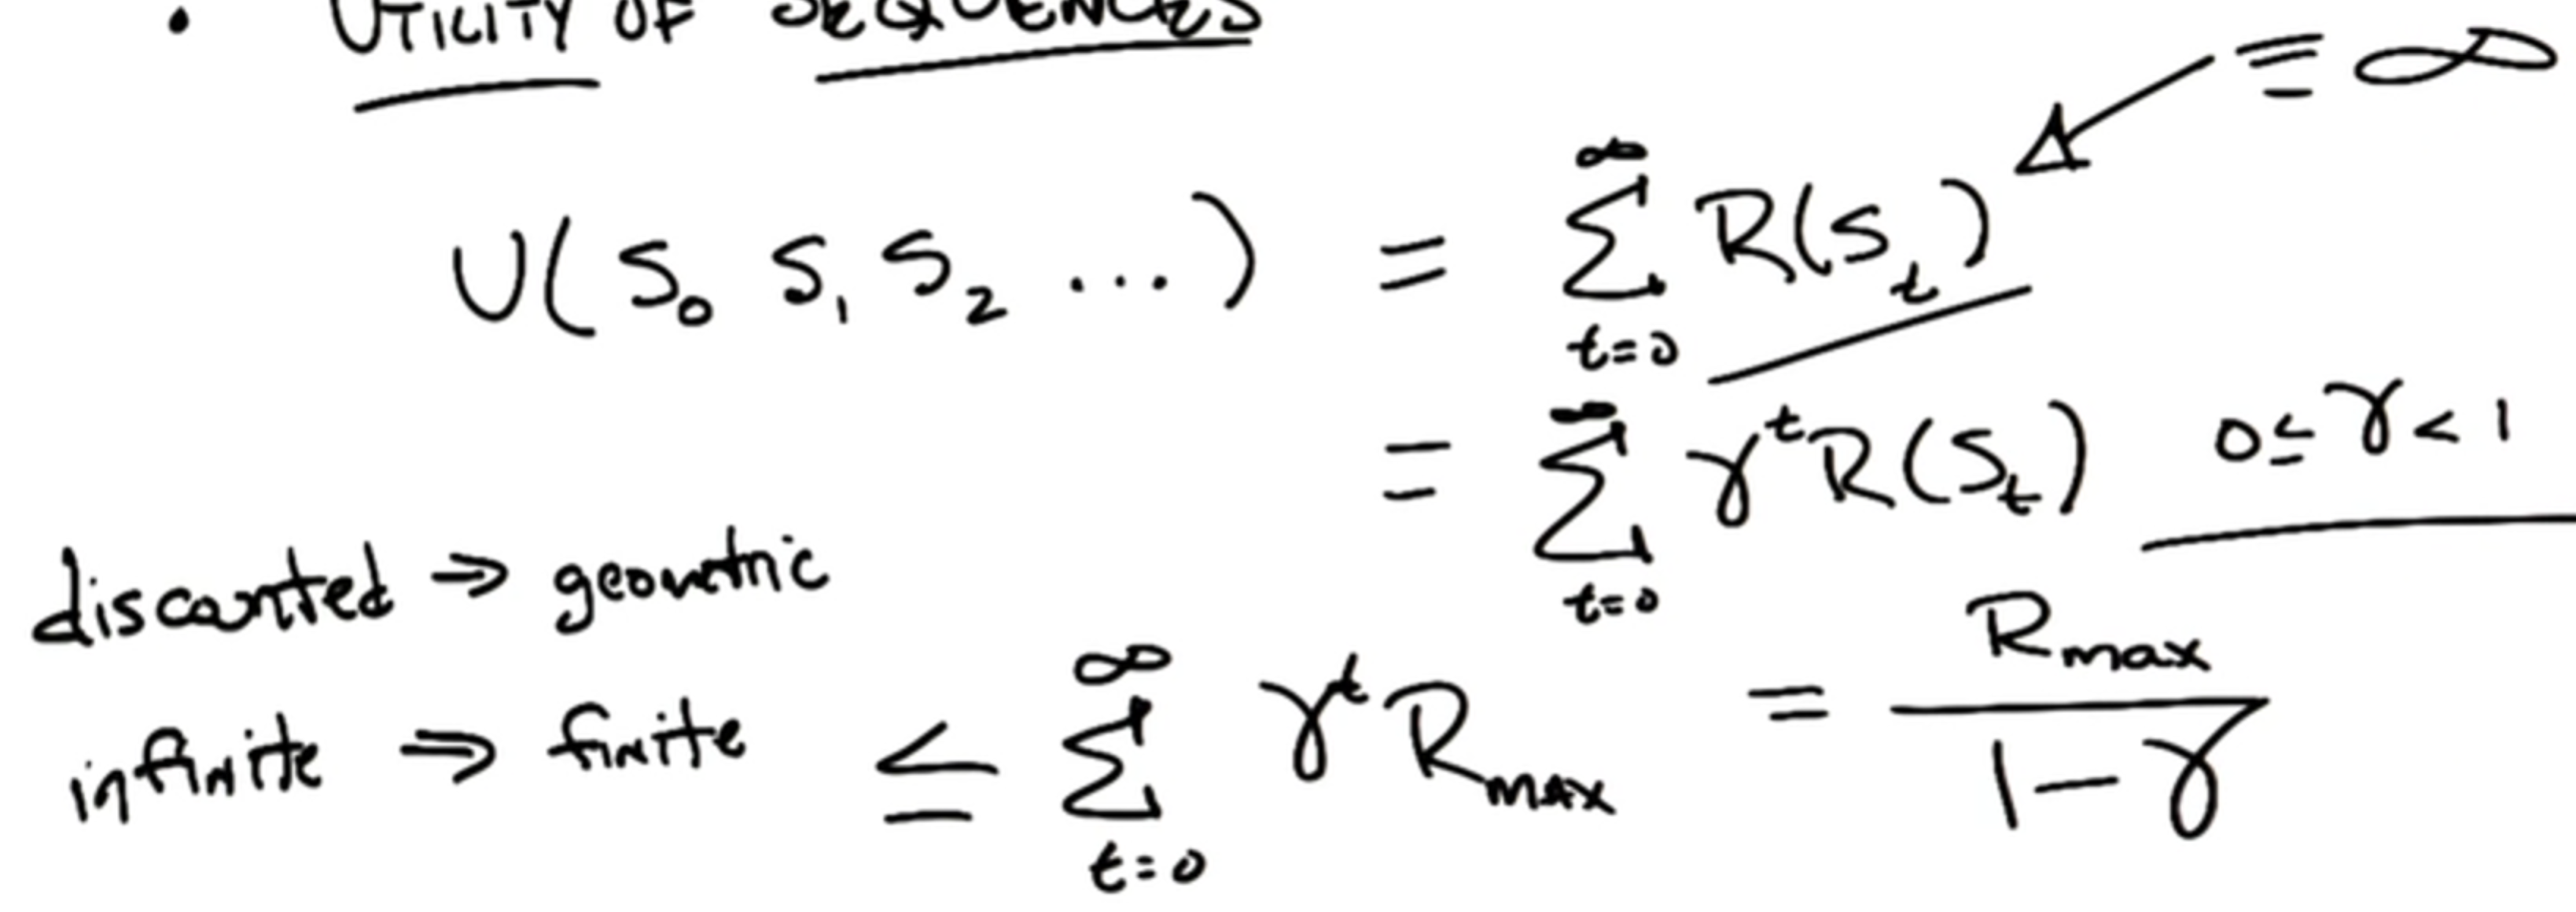 • UTILITY OF SEQUENCES
≡ ∞
U( S₀ S₁ S₂ ... ) = ∑_{t=0}^{∞} R(S_t)
= ∑_{t=0}^{∞} γ^t R(S_t) 0 ≤ γ < 1
discounted ⇒ geometric
infinite ⇒ finite ≤ ∑_{t=0}^{∞} γ^t R_max = R_max / (1 − γ)